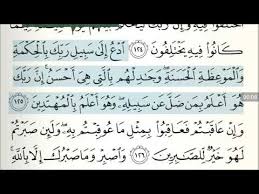 كَانُوا۟ فِيهِ يَخْتَلِفُونَ ١٢٤ ٱدْعُ إِلَىٰ سَبِيلِ رَبِّكَ بِٱلْحِكْمَةِ
وَٱلْمَوْعِظَةِ ٱلْحَسَنَةِ وَجَٰدِلْهُم بِٱلَّتِى هِىَ أَحْسَنُ إِنَّ رَبَّكَ
هُوَ أَعْلَمُ بِمَن ضَلَّ عَن سَبِيلِهِۦ وَهُوَ أَعْلَمُ بِٱلْمُهْتَدِينَ ١٢٥
وَإِنْ عَاقَبْتُمْ فَعَاقِبُوا۟ بِمِثْلِ مَا عُوقِبْتُم بِهِۦ وَلَئِن صَبَرْتُمْ
لَهُوَ خَيْرٌ لِّلصَّٰبِرِينَ ١٢٦ وَٱصْبِرْ وَمَا صَبْرُكَ إِلَّا بِٱللَّهِ